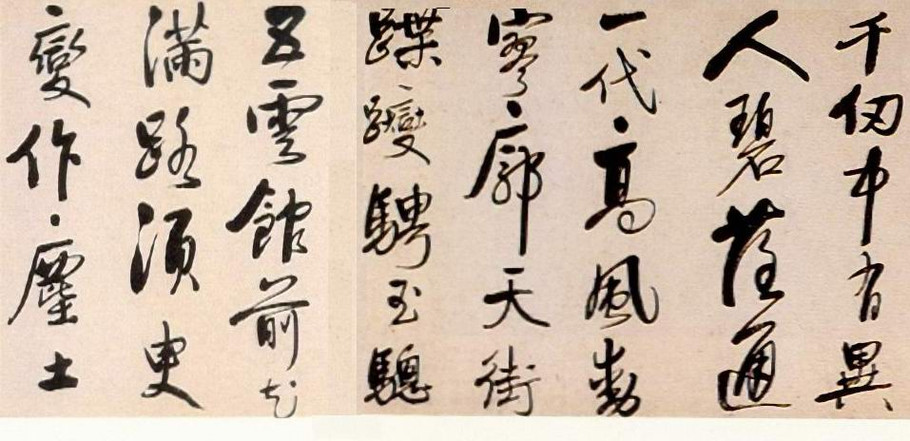 千仞中有異
人碧通
一代高風動
寥廓天街
蹀躞騁玉驄
五雲館前
滿路須臾
變作塵土